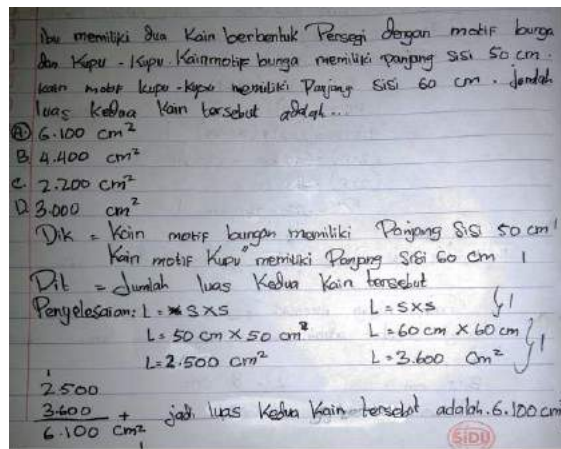 Ibu memiliki dua Kain berbentuk Persegi dengan motif bunga
dan Kupu - Kupu. Kain motif bunga memiliki panjang sisi 50 cm.
kain motif kupu - kupu memiliki Panjang sisi 60 cm. Jumlah
luas Kedua Kain tersebut adalah...
A. 6.100 cm²
B. 4.400 cm²
C. 2.200 cm²
D. 3.000 cm²
Dik = Kain motif bungan memiliki Panjang Sisi 50 cm 1
Kain motif Kupu" memiliki Panjang Sisi 60 cm 1
Dit = Jumlah luas Kedua Kain tersebut
Penyelesaian: L = S X S L = S X S } 1
L = 50 cm X 50 cm² L = 60 cm X 60 cm
L = 2.500 cm² L = 3.600 cm² } 1
1
2.500
3.600 + jadi luas Kedua Kain tersebut adalah. 6.100 cm
6.100 cm²
SIDU